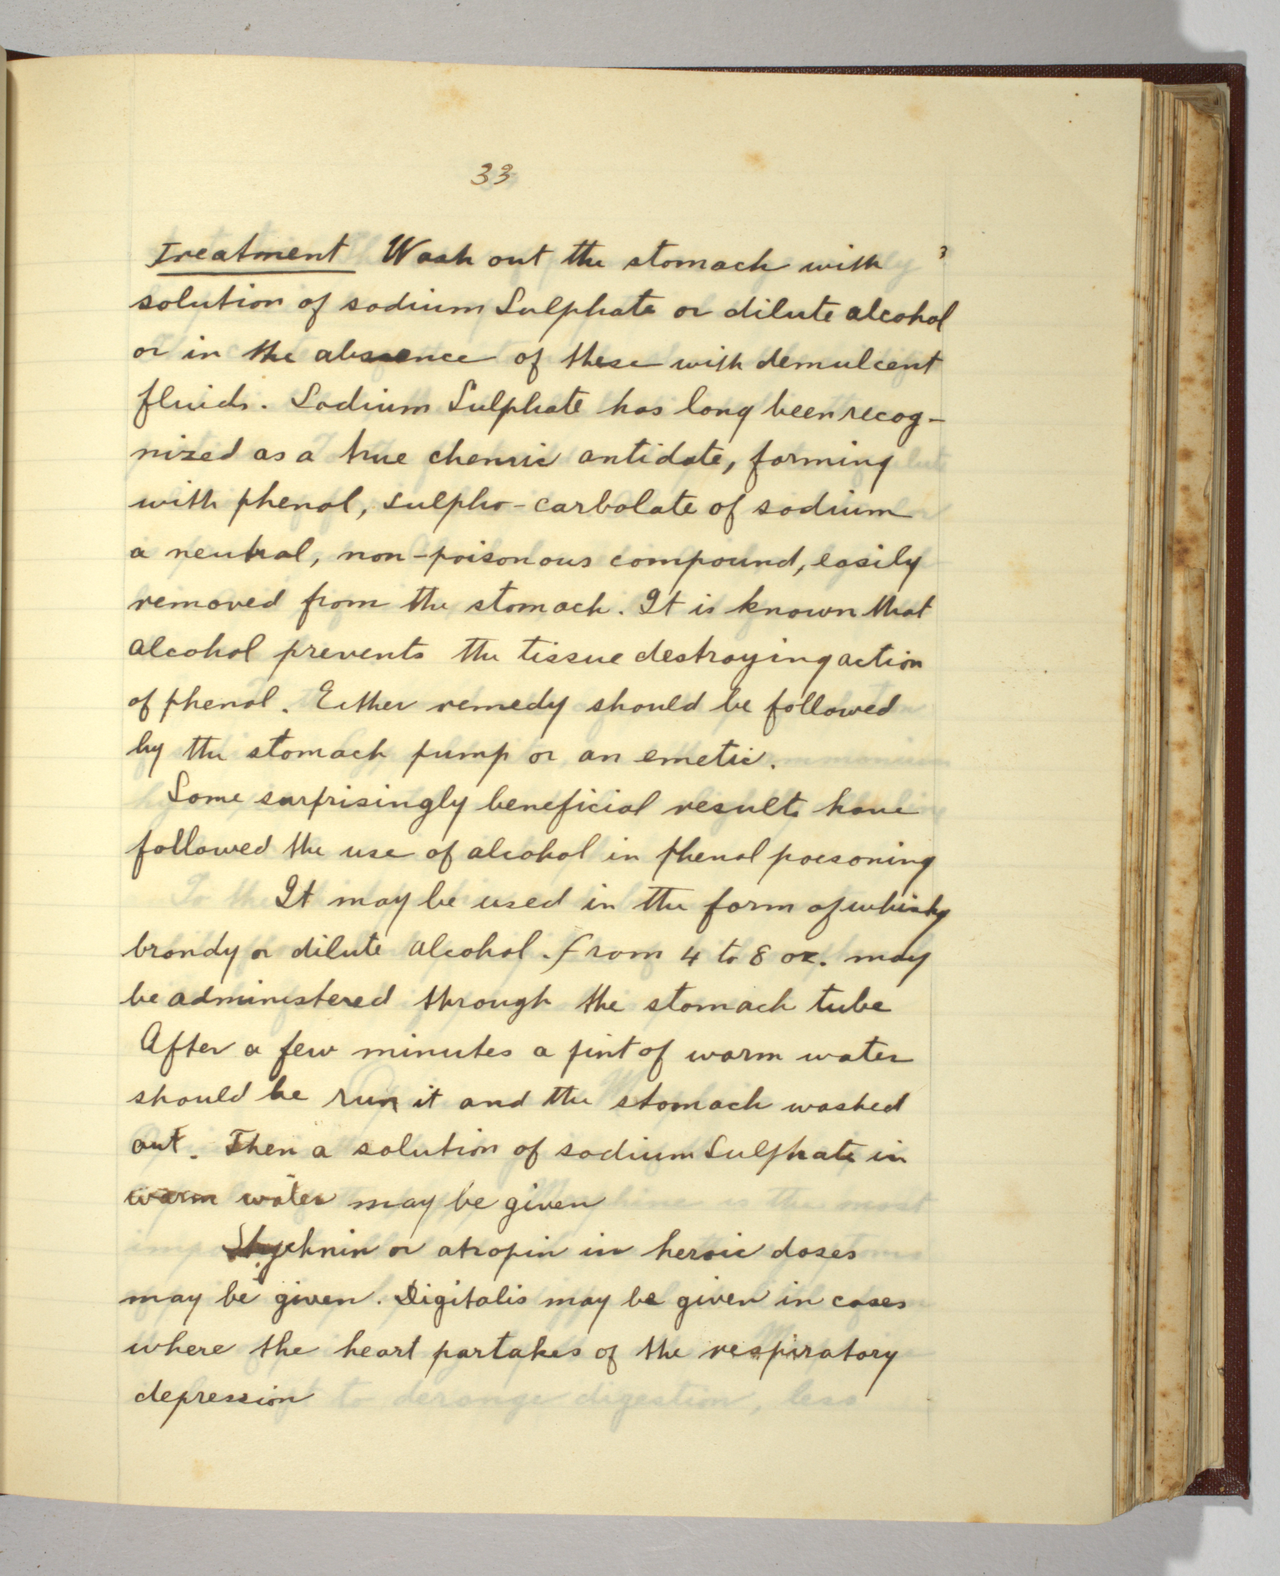 33
Treatment Wash out the stomach with
solution of sodium Sulphate or dilute alcohol
or in the absence of these with demulcent
fluids. Sodium Sulphate has long been recog-
nized as a true chemic antidote, forming
with phenol, sulpho-carbolate of sodium
a neutral, non-poisonous compound, easily
removed from the stomach. It is known that
alcohol prevents the tissue destroying action
of phenol. Either remedy should be followed
by the stomach pump or an emetic.
Some surprisingly beneficial results have
followed the use of alcohol in phenol poisoning
It may be used in the form of whisky
brandy or dilute alcohol. From 4 to 8 oz. may
be administered through the stomach tube
After a few minutes a pint of warm water
should be run it and the stomach washed
out. Then a solution of sodium Sulphate in
warm water may be given
Stychnin or atropin in heroic doses
may be given. Digitalis may be given in cases
where the heart partakes of the respiratory
depression